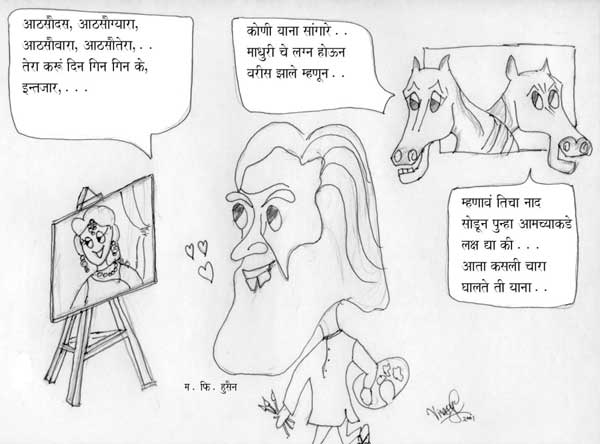 आठसौदस, आठसौग्यारा,
आठसौबारा, आठसौतेरा,. .
तेरा करूं दिन गिन गिन के,
इन्तजार,. . .
कोणी याना सांगारे. .
माधुरी चे लग्न होऊन
वरीस झाले म्हणून. .
म्हणावं तिचा नाद
सोडून पुन्हा आमच्याकडे
लक्ष द्या की. . .
आता कसली चारा
घालते ती याना. .
म. फि. हुसैन